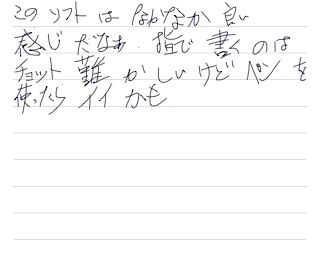 このソフトはなかなか良い
感じだなあ.指で書くのは
チョット難かしいけどペンを
使ったらイイかも